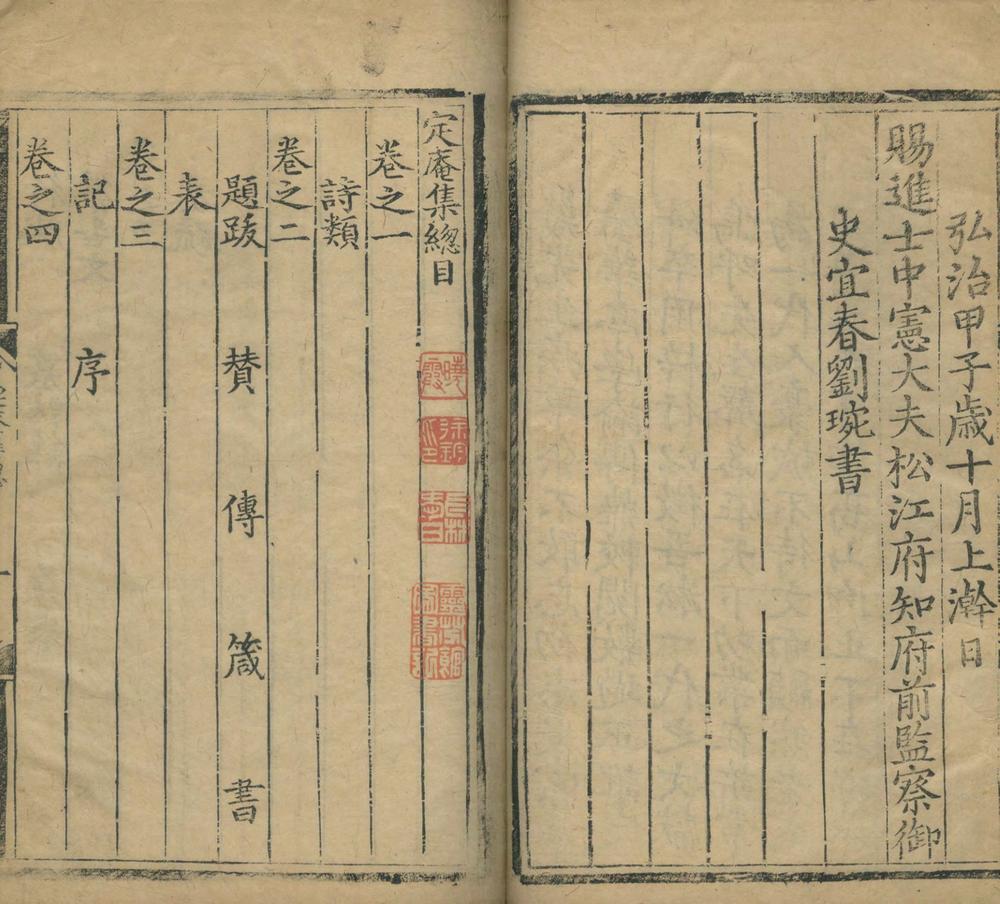 弘治甲子歳十月上澣日
賜進士中憲大夫松江府知府前監察御
史宜春劉琬書
定庵集總目
卷之一
詩類
卷之二
題跋 賛 傳 箴 書
表
卷之三
記 序
卷之四